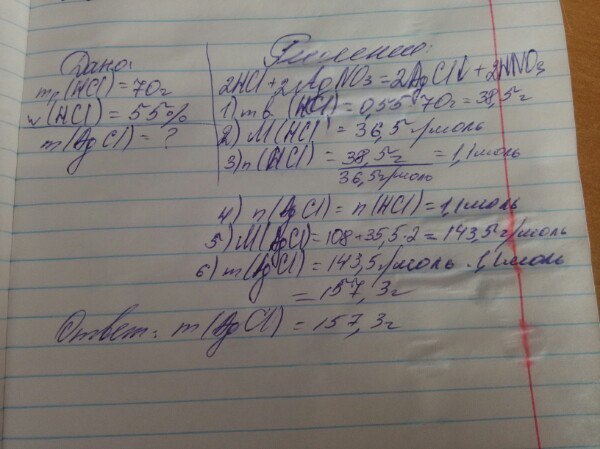 Дано:
mр(HCl) = 70г
w(HCl) = 55%
m(AgCl) = ?
Решение:
2HCl + 2AgNO₃ = 2AgCl↓ + 2HNO₃
1) m в. (HCl) = 0,55 · 70г = 38,5г
2) M(HCl) = 36,5г/моль
3) n(HCl) = 38,5г / 36,5г/моль = 1,1моль
4) n(AgCl) = n(HCl) = 1,1моль
5) M(AgCl) = 108 + 35,5·2 = 143,5г/моль
6) m(AgCl) = 143,5г/моль · 1,1моль
= 157,3г
Ответ: m(AgCl) = 157,3г